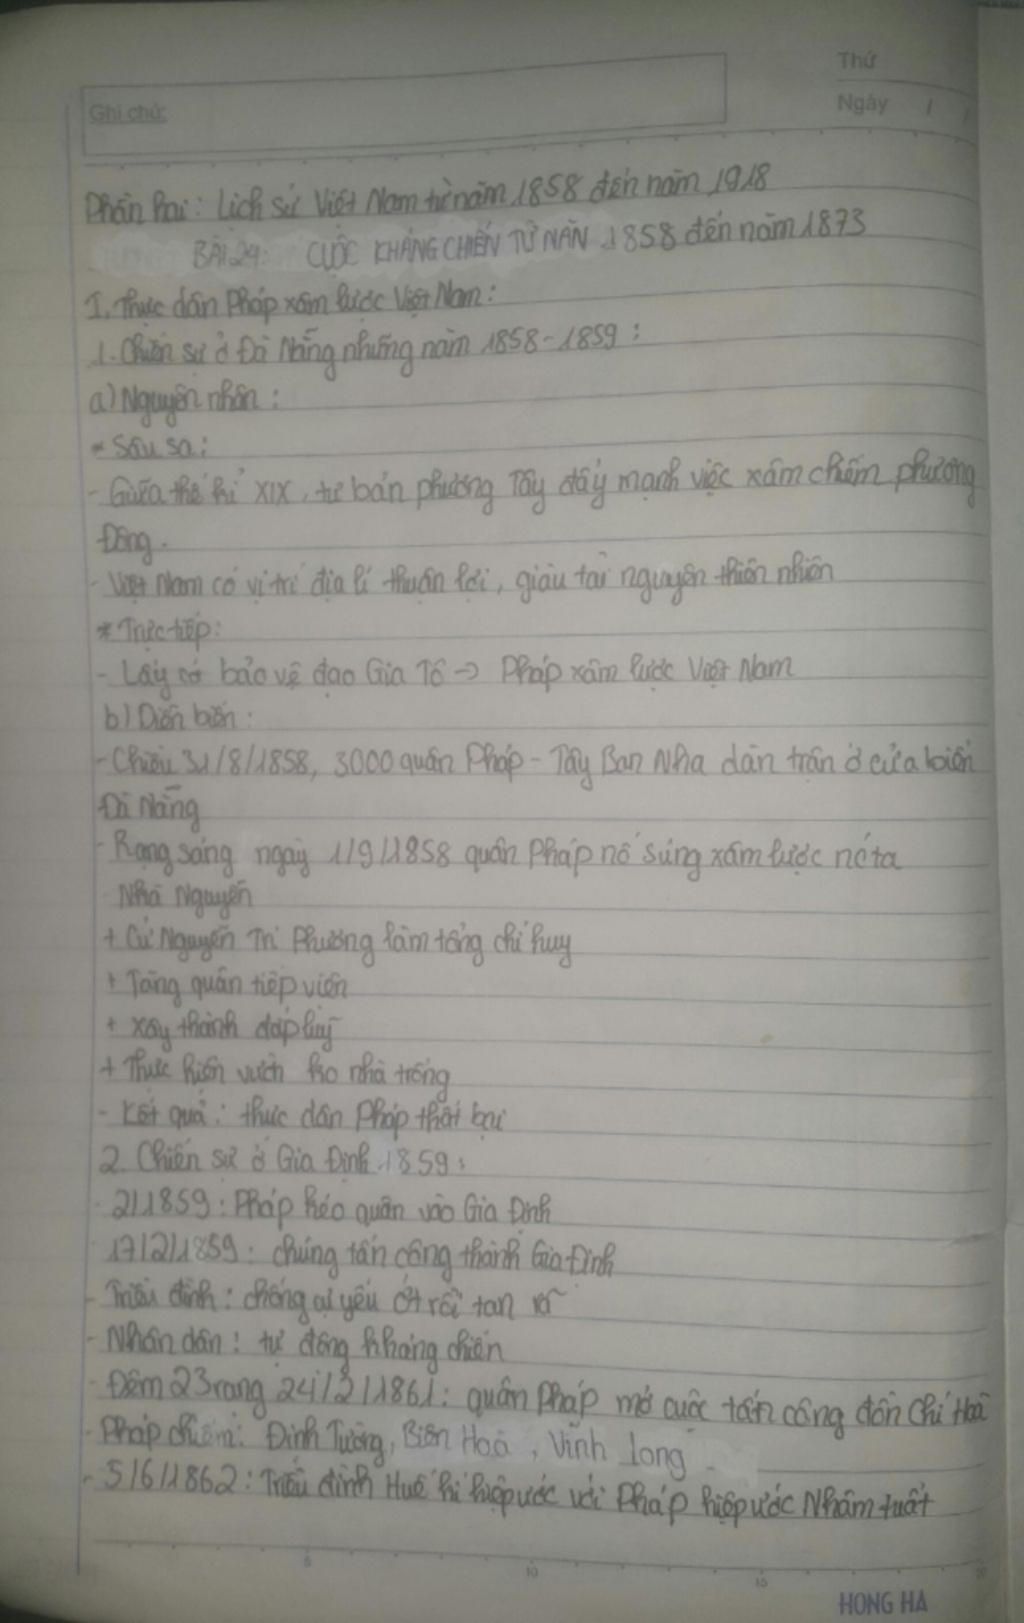 Thứ
Ghi chú:
Ngày / /
Phần hai: Lịch sử Việt Nam từ năm 1858 đến năm 1918
BÀI 24: CUỘC KHÁNG CHIẾN TỪ NĂN 1858 đến năm 1873
I. Thực dân Pháp xâm lược Việt Nam:
1. Chiến sự ở Đà Nẵng những năm 1858-1859:
a) Nguyên nhân:
* Sâu sa:
- Giữa thế kỉ XIX, tư bản phương Tây đẩy mạnh việc xâm chiếm phương
Đông.
- Việt Nam có vị trí địa lí thuận lợi, giàu tài nguyên thiên nhiên
* Trực tiếp:
- Lấy cớ bảo vệ đạo Gia Tô -> Pháp xâm lược Việt Nam
b) Diễn biến:
- Chiều 31/8/1858, 3000 quân Pháp - Tây Ban Nha dàn trận ở cửa biển
Đà Nẵng
- Rạng sáng ngày 1/9/1858 quân Pháp nổ súng xâm lược nc ta
- Nhà Nguyễn
+ Cử Nguyễn Tri Phương làm tổng chỉ huy
+ Tăng quân tiếp viện
+ Xây thành đắp lũy
+ Thực hiện vườn ko nhà trống
- Kết quả: thực dân Pháp thất bại
2. Chiến sự ở Gia Định 1859:
- 2/1859: Pháp kéo quân vào Gia Định
17/2/1859: chúng tấn công thành Gia Định
- Triều đình: chống cự yếu ớt rồi tan rã
- Nhân dân: tự động kháng chiến
- Đêm 23 rạng 24/2/1861: quân Pháp mở cuộc tấn công đồn Chí Hoà
- Pháp chiếm: Định Tường, Biên Hoà, Vĩnh Long
- 5/6/1862: Triều đình Huế kí hiệp ước với Pháp hiệp ước Nhâm tuất
5 10 15 20
HONG HA